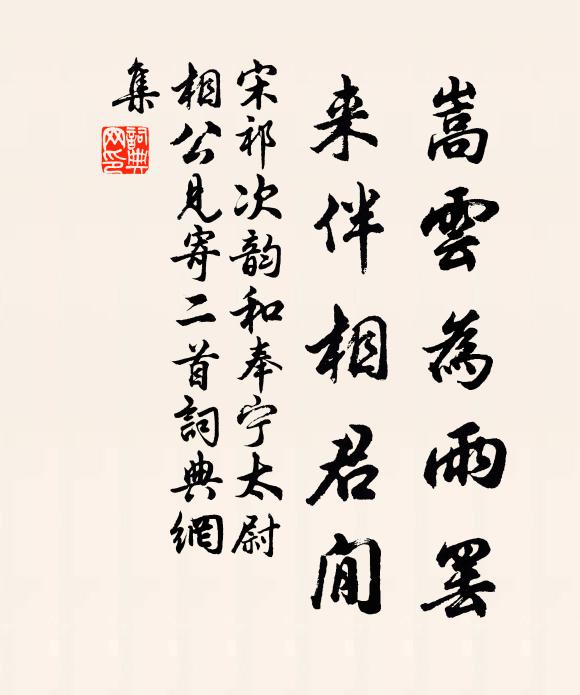 嵩雲為雨罢
来伴相君閒
宋祁次韵和奉宁太尉
相公見寄二首詞典網
集
詞典
网印